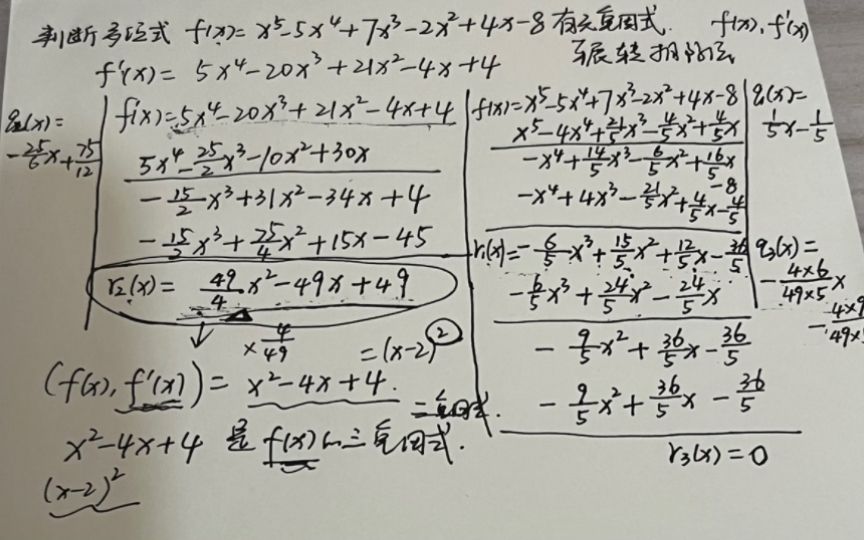 判断多项式 f(x)=x⁵-5x⁴+7x³-2x²+4x-8 有无重因式. f(x), f'(x)
辗转相除法
f'(x)= 5x⁴-20x³+21x²-4x+4
q₂(x)=
-25/6x+75/12
f'(x)=5x⁴-20x³+21x²-4x+4
5x⁴-25/2x³-10x²+30x
-15/2x³+31x²-34x+4
-15/2x³+75/4x²+15x-45
r₂(x)= 49/4x²-49x+49
×4/49
=(x-2)²
f(x)=x⁵-5x⁴+7x³-2x²+4x-8
x⁵-4x⁴+21/5x³-4/5x²+4/5x
-x⁴+14/5x³-6/5x²+16/5x-8
-x⁴+4x³-21/5x²+4/5x-4/5
r₁(x)=-6/5x³+15/5x²+12/5x-36/5
-6/5x³+24/5x²-24/5x
-9/5x²+36/5x-36/5
-9/5x²+36/5x-36/5
r₃(x)=0
q₁(x)=
1/5x-1/5
q₃(x)=
-4×6/49×5x
-4×9/49×
(f(x), f'(x))= x²-4x+4.
=重因式.
x²-4x+4 是 f(x)的三重因式.
(x-2)²